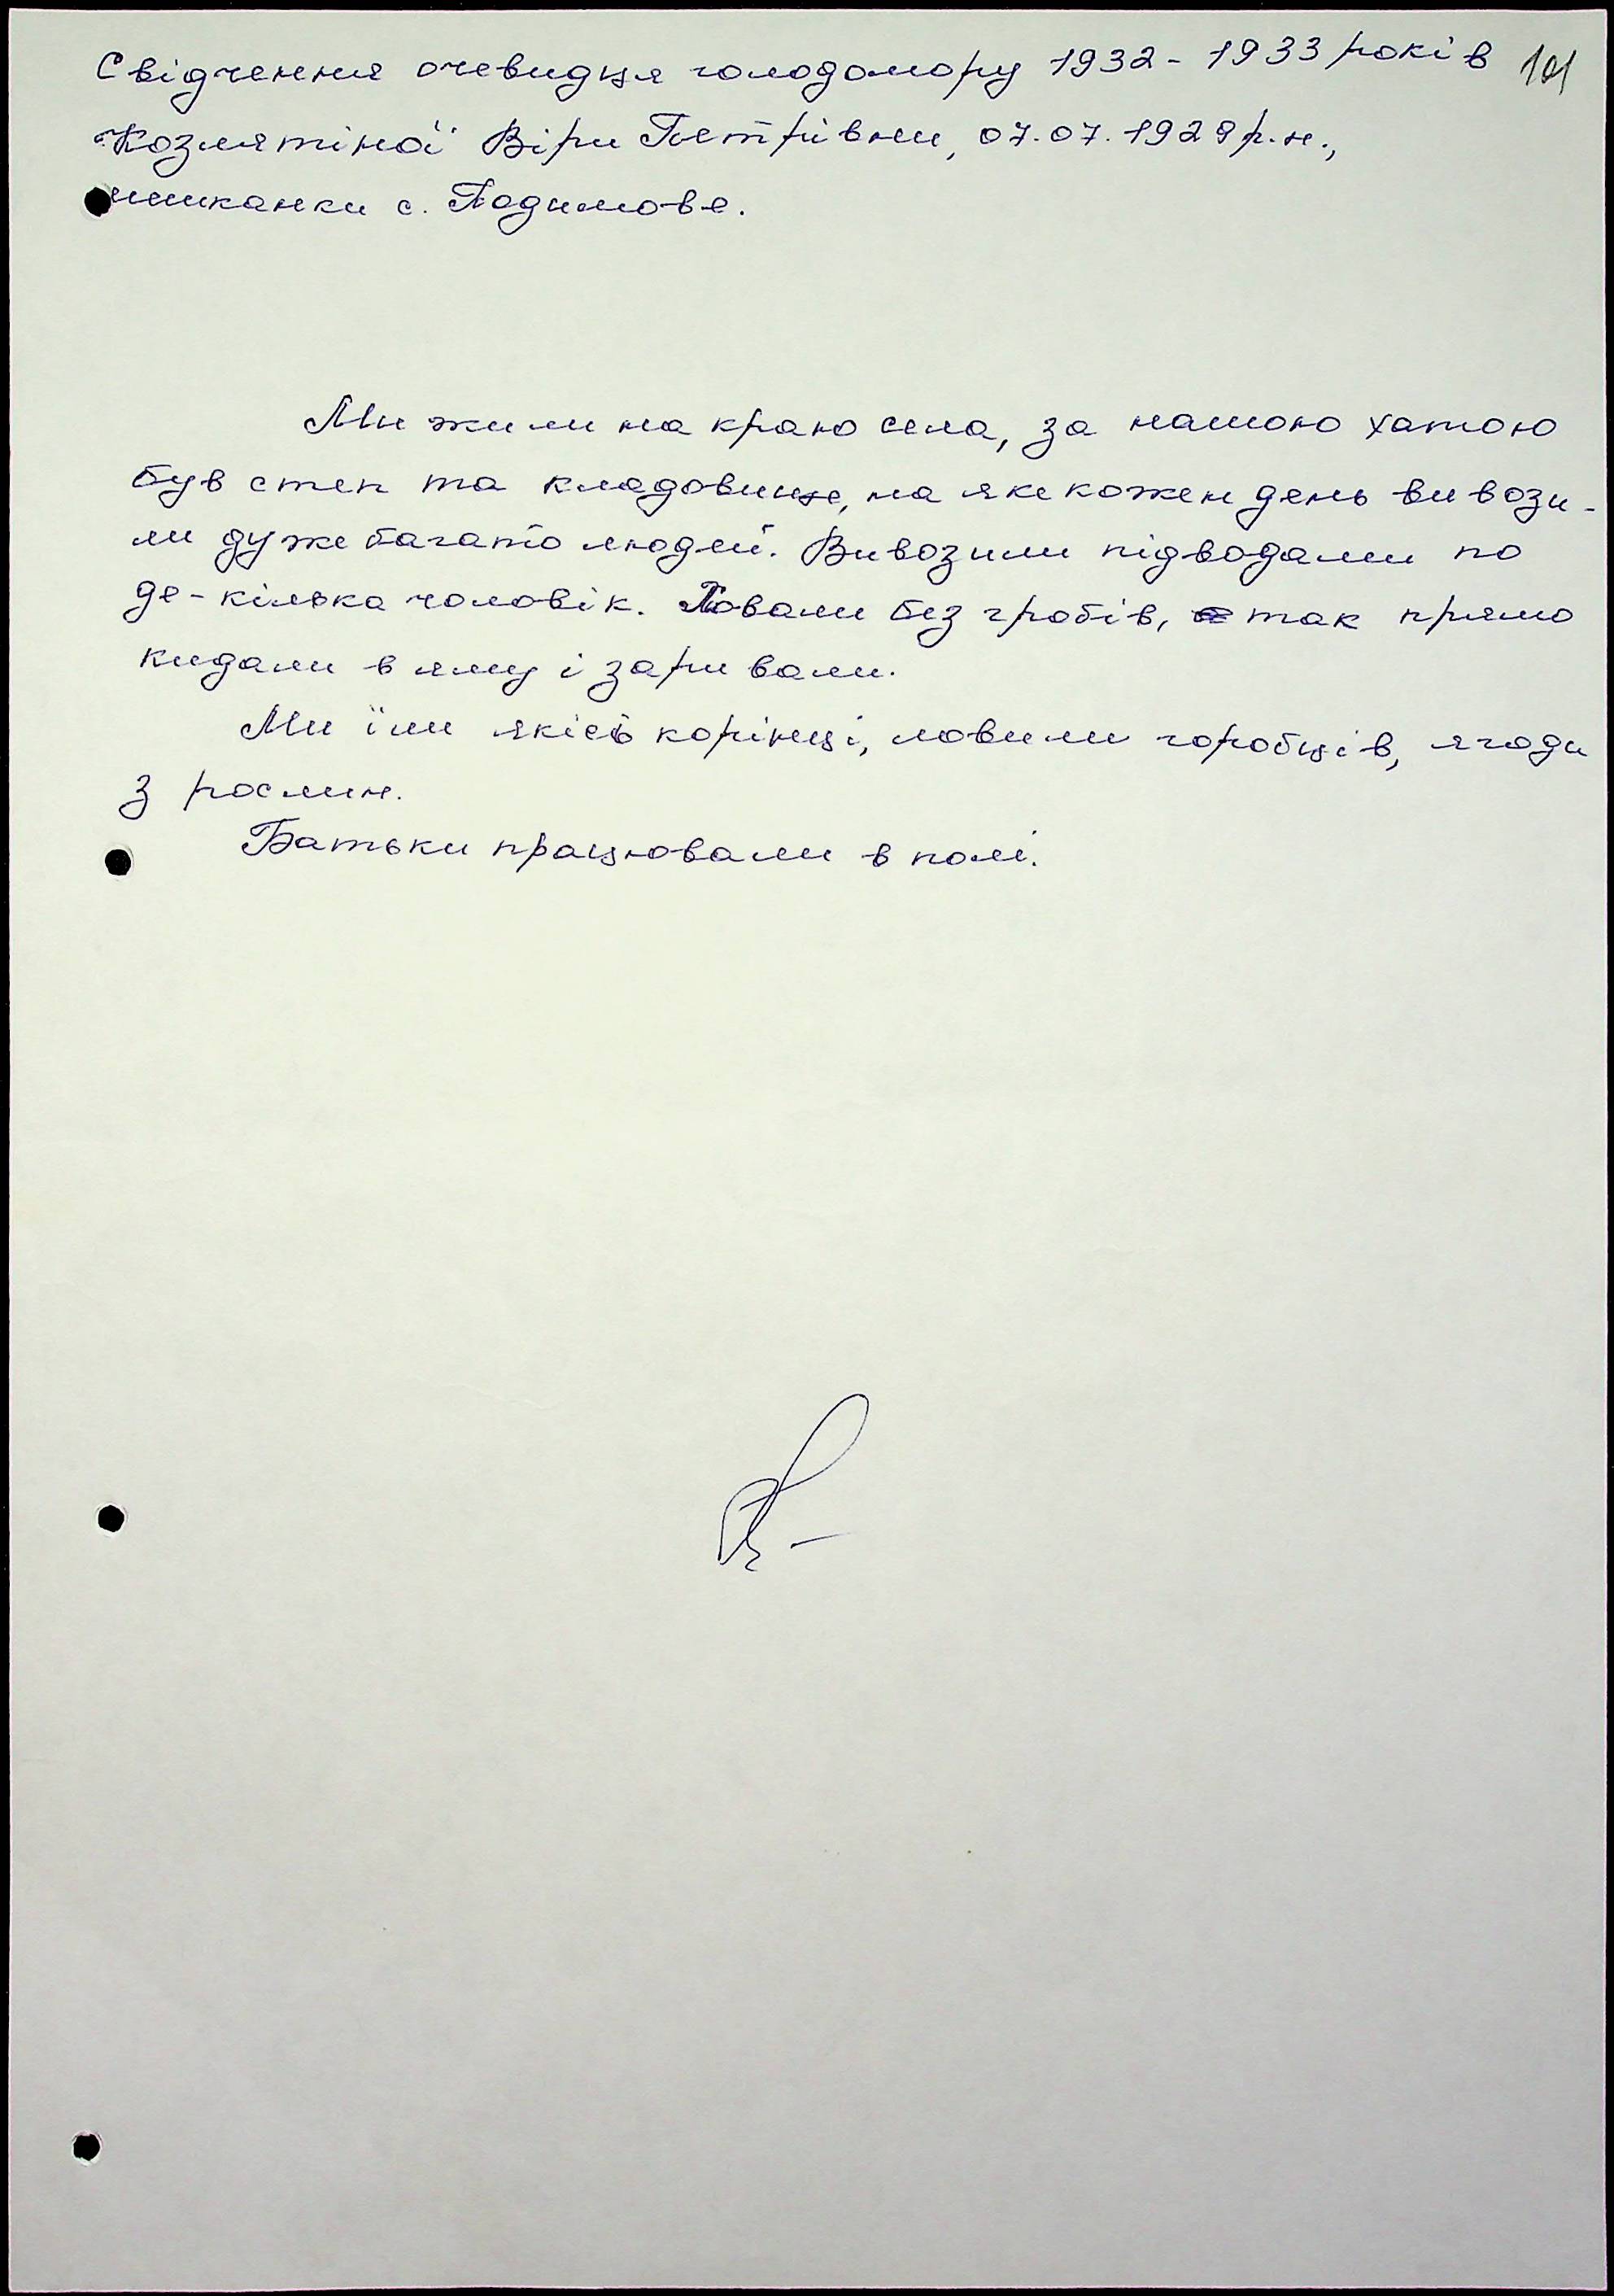 Свідчення очевидця голодомору 1932-1933 років 101
Козлятіної Віри Петрівни, 07.07.1929 р.н.,
мешканки с. Подимове.
Ми жили на краю села, за нашою хатою
був степ та кладовище, на яке кожен день вивози-
ли дуже багато людей. Вивозили підводами по
де-кілька чоловік. Ховали без гробів, так прямо
кидали в яму і заривали.
Ми їли якісь корінці, ловили горобців, ягоди
з рослин.
Батьки працювали в полі.